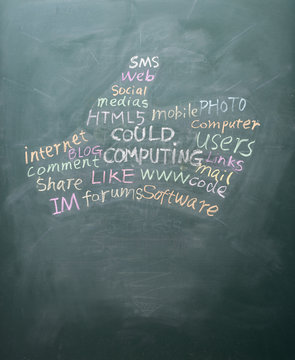 SMS
Web
Social
medias
HTML5 mobile PHOTO
COULD Computer
internet BLOG COMPUTING users
comment Links
Share LIKE WWW code mail
IM forums Software